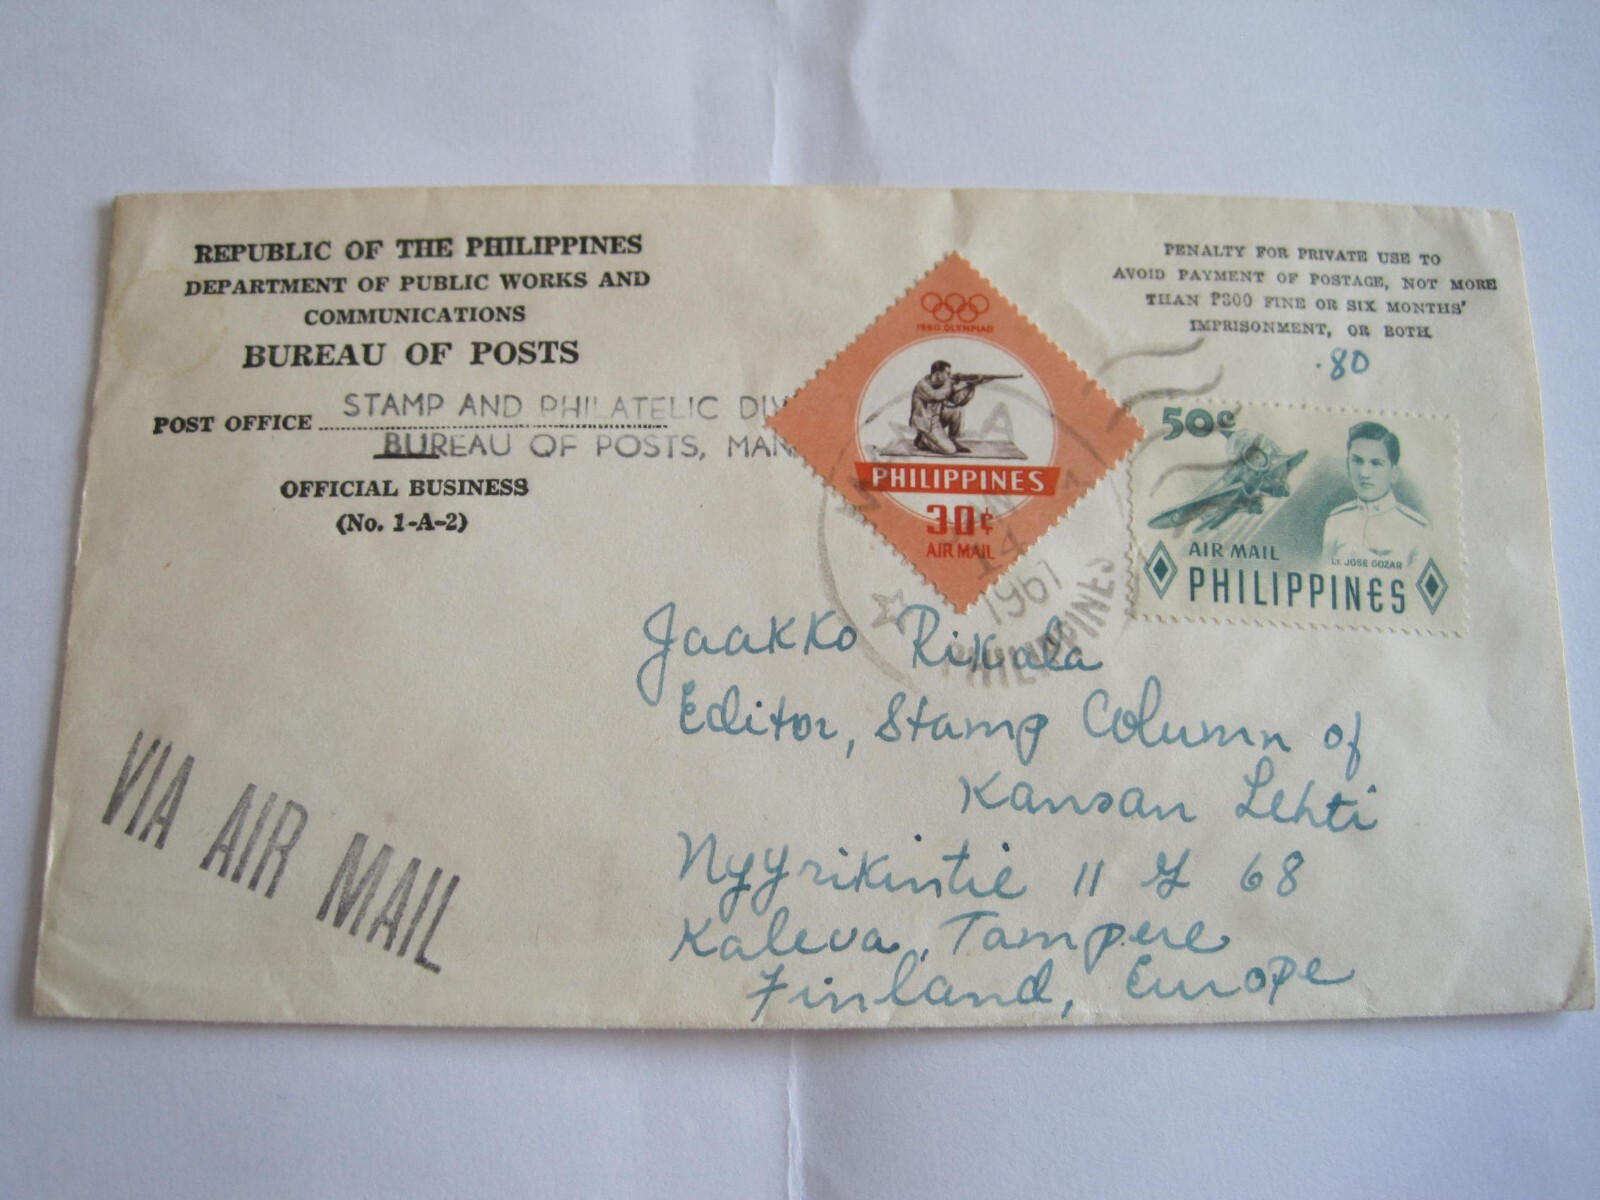 REPUBLIC OF THE PHILIPPINES
DEPARTMENT OF PUBLIC WORKS AND
COMMUNICATIONS
BUREAU OF POSTS
POST OFFICE
STAMP AND PHILATELIC DIV
BUREAU OF POSTS, MAN
OFFICIAL BUSINESS
(No. 1-A-2)
PENALTY FOR PRIVATE USE TO
AVOID PAYMENT OF POSTAGE, NOT MORE
THAN ₱300 FINE OR SIX MONTHS'
IMPRISONMENT, OR BOTH
.80
1960 OLYMPIAD
PHILIPPINES
30¢
AIR MAIL
50¢
AIR MAIL
LT. JOSE GOZAR
PHILIPPINES
14
1961
PHILIPPINES
Jaakko Rikala
Editor, Stamp Column of
Kansan Lehti
Nyyrikintie 11 G 68
Kaleva, Tampere
Finland, Europe
VIA AIR MAIL